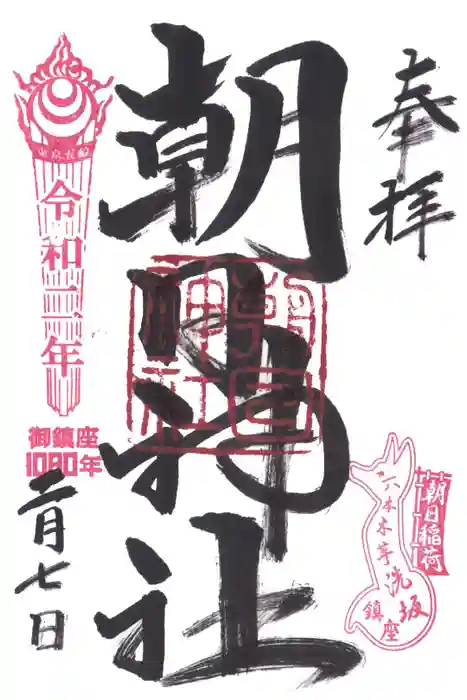 奉拝
朝日神社
朝日神社
東京五輪
令和二年
御鎮座
1080年
二月七日
朝日稲荷
六本木芋洗坂
鎮座